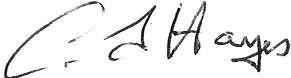 C J Hayes